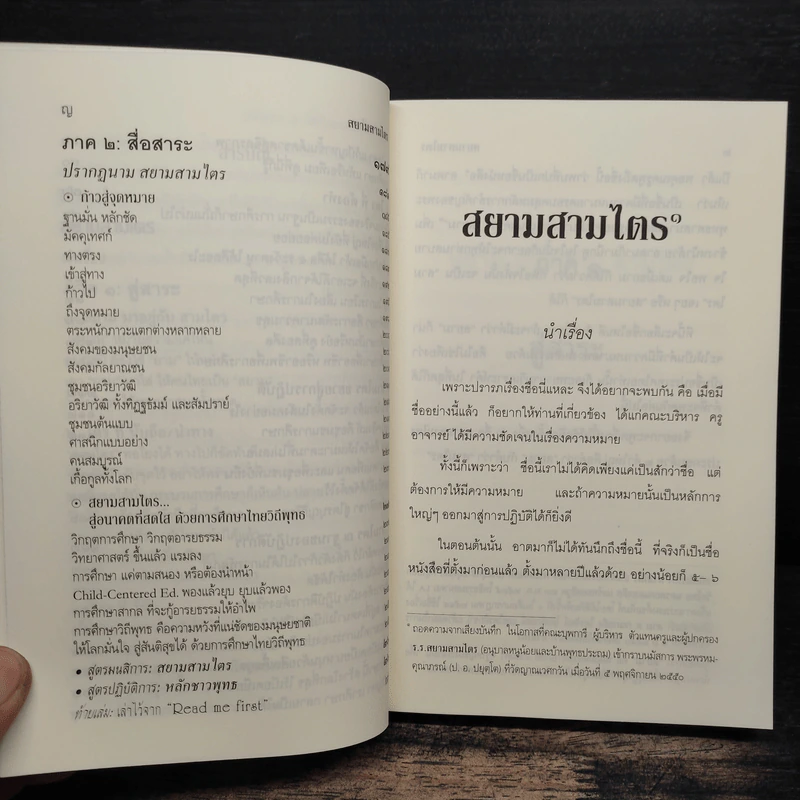 ญ
สยามสามไตร
ภาค ๒: สื่อสาระ
ปรากฏนาม สยามสามไตร
๏ ก้าวสู่จุดหมาย
ฐานมั่น หลักชัด
มัคคุเทศก์
ทางตรง
เข้าสู่ทาง
ก้าวไป
ถึงจุดหมาย
ตระหนักภาวะแตกต่างหลากหลาย
สังคมของมนุษยชน
สังคมกัลยาณชน
ชุมชนอริยาวัฒิ
อริยาวัฒิ ทั้งทิฏฐธัมม์ และสัมปราย์
ชุมชนต้นแบบ
ศาสนิกแบบอย่าง
คนสมบูรณ์
เกื้อกูลทั้งโลก
๏ สยามสามไตร...
สู่อนาคตที่สดใส ด้วยการศึกษาไทยวิถีพุทธ
วิกฤตการศึกษา วิกฤตอารยธรรม
วิทยาศาสตร์ ขึ้นแล้ว แรมลง
การศึกษา แค่ตามสนอง หรือต้องนำหน้า
Child-Centered Ed. พองแล้วยุบ ยุบแล้วพอง
การศึกษาสากล ที่จะกู้อารยธรรมให้อำไพ
การศึกษาวิถีพุทธ คือความหวังที่แน่ชัดของมนุษยชาติ
ให้โลกมั่นใจ สู่สันติสุขได้ ด้วยการศึกษาไทยวิถีพุทธ
• สูตรผนสิการ: สยามสามไตร
• สูตรปฏิบัติการ: หลักชาวพุทธ
ท้ายเล่ม: เล่าไว้จาก "Read me first"
สยามสามไตร๑
นำเรื่อง
เพราะปรารภเรื่องชื่อนี้แหละ จึงได้อยากจะพบกัน คือ เมื่อมี
ชื่ออย่างนี้แล้ว ก็อยากให้ท่านที่เกี่ยวข้อง ได้แก่คณะบริหาร ครู
อาจารย์ ได้มีความชัดเจนในเรื่องความหมาย
ทั้งนี้ก็เพราะว่า ชื่อนี้เราไม่ได้คิดเพียงแค่เป็นสักว่าชื่อ แต่
ต้องการให้มีความหมาย และถ้าความหมายนั้นเป็นหลักการ
ใหญ่ๆ ออกมาสู่การปฏิบัติได้ก็ยิ่งดี
ในตอนต้นนั้น อาตมาก็ไม่ได้ทันนึกถึงชื่อนี้ ที่จริงก็เป็นชื่อ
หนังสือที่ตั้งมาก่อนแล้ว ตั้งมาหลายปีแล้วด้วย อย่างน้อยก็ ๕– ๖
๑ ถอดความจากเสียงบันทึก ในโอกาสที่คณะบุพการี ผู้บริหาร ตัวแทนครูและผู้ปกครอง
ร.ร.สยามสามไตร (อนุบาลหนูน้อยและบ้านพุทธประถม) เข้ากราบนมัสการ พระพรหม-
คุณาภรณ์ (ป. อ. ปยุตฺโต) ที่วัดญาณเวศกวัน เมื่อวันที่ ๕ พฤศจิกายน ๒๕๕๐